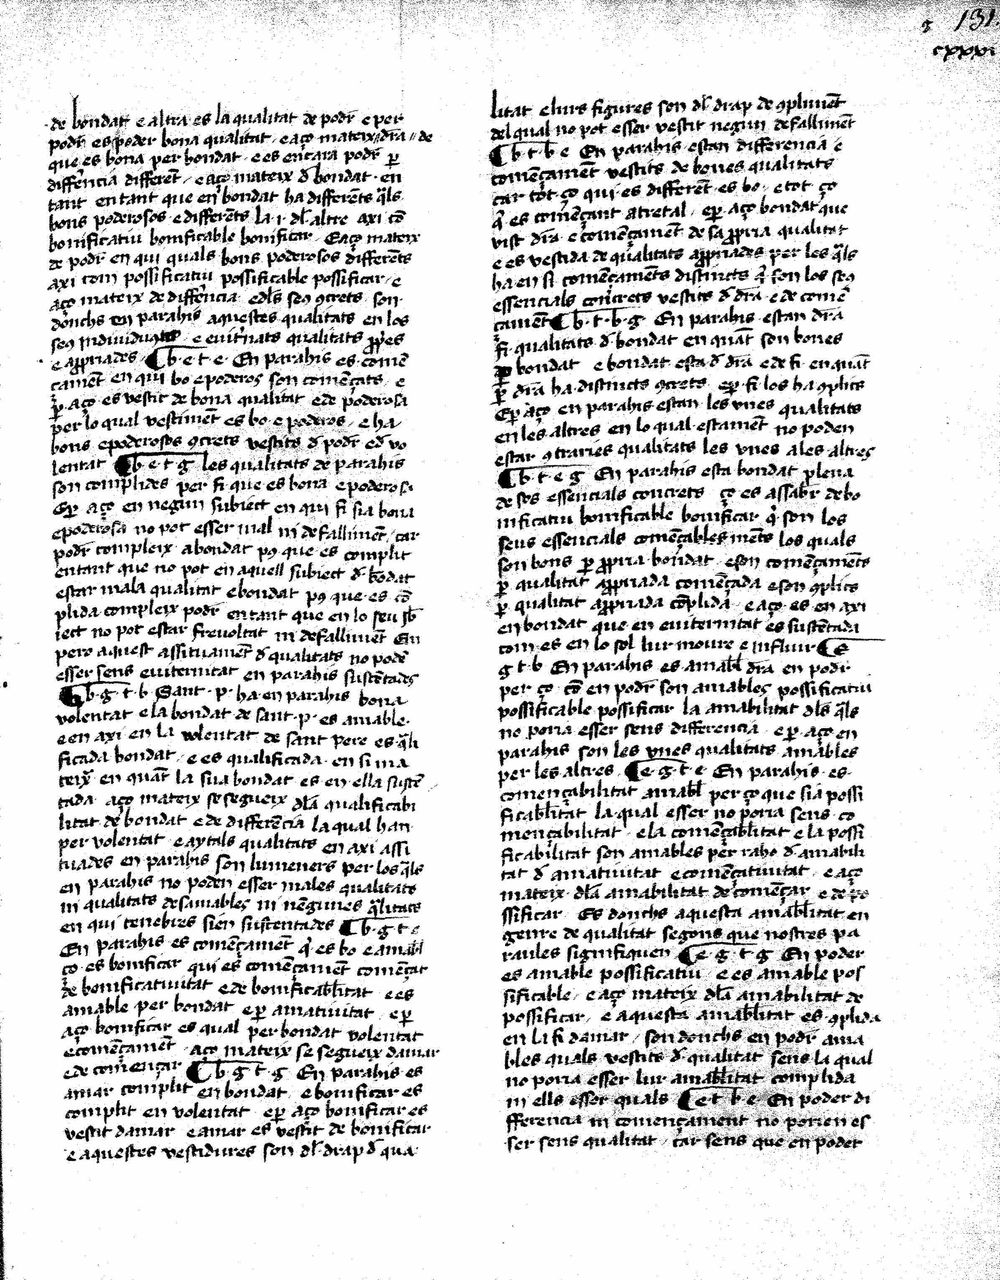 131
cxxxi
de bondat e altra es la qualitat de podr e per
podr es poder bona qualitat e aço mateix dra de
que es bona per bondat e es encara podr p̱
differencia different e aço mateix d̄ bondat en
tant en tant que en bondat ha differēts q̄ls
bons poderosos e differēts la ·i· dl̄ altre axi cō
bonificatiu bonificable bonificar E aço mateix
de podr en qui quals bons poderosos differēts
axi com possificatiu possificable possificar e
aço mateix de differēcia e dl̄s seus ꝯcrets son
dōnchs en parahis aquestes qualitats en los
seus e euitnats qualitats ꝓp̄es
e apꝓriades ¶ b·e·t·e· En parahis es comē
çament en qui bo e poderos son comēçats e
ꝑ aço es vestit de bona qualitat e de poderosa
per lo qual vestiment es bo e poderos e ha
bons e poderosos ꝯcrets vestits d̄ podr e d̄ vo
lentat ¶ b·e·t·g· les qualitats de parahis
son complides per fi que es bona e poderosa
Eꝑ aço en negun subiect en qui fi sia bona
e poderosa no pot esser mal ni defallimēt car
podr compleix a bondat pꝰ que es complit
en tant que no pot en aquell subiect d̄ bōdat
estar mala qualitat e bondat pꝰ que es cō
plida compleix podr en tant que en lo seu sb̄
iect no pot estar freuoltat ni defallimēt En
pero aquest assituament d̄ qualitats no podē
esser sens euiternitat en parahis sustētades
¶ b·g·t·b Sant ·p· ha en parahis bona
volentat e la bondat de sant ·p· es amable
e en axi en la volentat de sant pere es q̄li
ficada bondat e es qualificada en si ma
teix en quāt la sua bondat es en ella sustē
tada aço mateix se segueix dla qualificabi
litat de bondat e de differēcia la qual han
per volentat e aytals qualitats en axi assi
tuades en parahis son lumeners per los q̄ls
en parahis no poden esser males qualitats
ni qualitats desamables ni nēgunes q̄litats
en qui tenebres sien sustentades ¶ b·g·t·e
En parahis es comēçamēt q̄ es bo e amabl̄
ço es bonificar qui es comēçamēt comēçat
de bonificatiuitat e de bonificabl̄itat e es
amable per bondat eꝑ amatiuitat eꝑ
aço bonificar es qual per bondat volentat
e comēçamēt aço mateix se segueix damar
e de comēçar ¶ b·g·t·g En parahis es
amar complit en bondat e bonificar es
complit en volentat eꝑ aço bonificar es
vestit damar e amar es vestit de bonificar
e aquestes vestidures son dl̄ drap d̄ qua
litat e lurs figures son dl̄ drap de ꝯplimēt
del qual no pot esser vestit negun defallimēt
¶ b·t·b·e En parahis estan differencia e
comēçamēt vestits de bones qualitats
car tot ço qui es different es bo e tot ço
q̄ es començant atretal eꝑ aço bondat que
vist dr̄a e comēçamēt de sa ꝓpria qualitat
e es vestida de qualitats apꝓriades per les q̄ls
ha en si comēçamēts distincts q̄ son los seus
essencials concrets vestits d̄ dr̄a e de comē
çament ¶ b·t·b·g En parahis estan dr̄a
fi qualitats d̄ bondat en quāt son bones
ꝑ bondat e bondat esta d̄ dr̄a e de fi en quāt
ꝑ dr̄a ha distincts ꝯcrets eꝑ fi los ha ꝯplits
Eꝑ aço en parahis estan les vnes qualitats
en les altres en lo qual estamēt no poden
estar ꝯtraries qualitats les vnes a les altres
¶ b·t·e·g En parahis esta bondat plena
de sos essencials concrets ço es assabr̄ de bo
nificatiu bonificable bonificar q̄ son los
seus essencials comēçables mēts los quals
son bons ꝑ ꝓpria bondat e son comēçamēts
ꝑ qualitat apꝓriada comēçada e son ꝯplits
ꝑ qualitat apꝓriada cōplida e aço es en axi
en bondat que en euiternitat es sustētada
com es en lo sol lur moure e influir ¶ e
g·t·b En parahis es amabl̄ dr̄a en podr
per ço cō en podr son amables possificatiu
possificable possificar la amabilitat dl̄s q̄ls
no poria esser sens differencia eꝑ aço en
parahis son les vnes qualitats amables
per les altres ¶ e·g·t·e En parahis es
començabilitat amabl̄ per ço que sia possi
ficabl̄itat la qual esser no poria sens co
mençabilitat e la comēçabl̄itat e la possi
ficabilitat son amables per raho d̄ amabili
tat d̄ amatiuitat e comēçatiuitat e aço
mateix dla amabilitat de comēçar e de po
ssificar Es donchs aquesta amabl̄itat en
genre de qualitat segons que nostres pa
raules signifiquen ¶ e·g·t·g En poder
es amable possificatiu e es amable pos
sificable e aço mateix dla amabilitat de
possificar e aquesta amabl̄itat es ꝯplida
en la fi damar son donchs en podr ama
bles quals vestits d̄ qualitat sens la qual
no poria esser lur amabl̄itat complida
ni ells esser quals ¶ e·t·b·e En poder di
fferencia ni començament no porien es
ser sens qualitat car sens que en poder